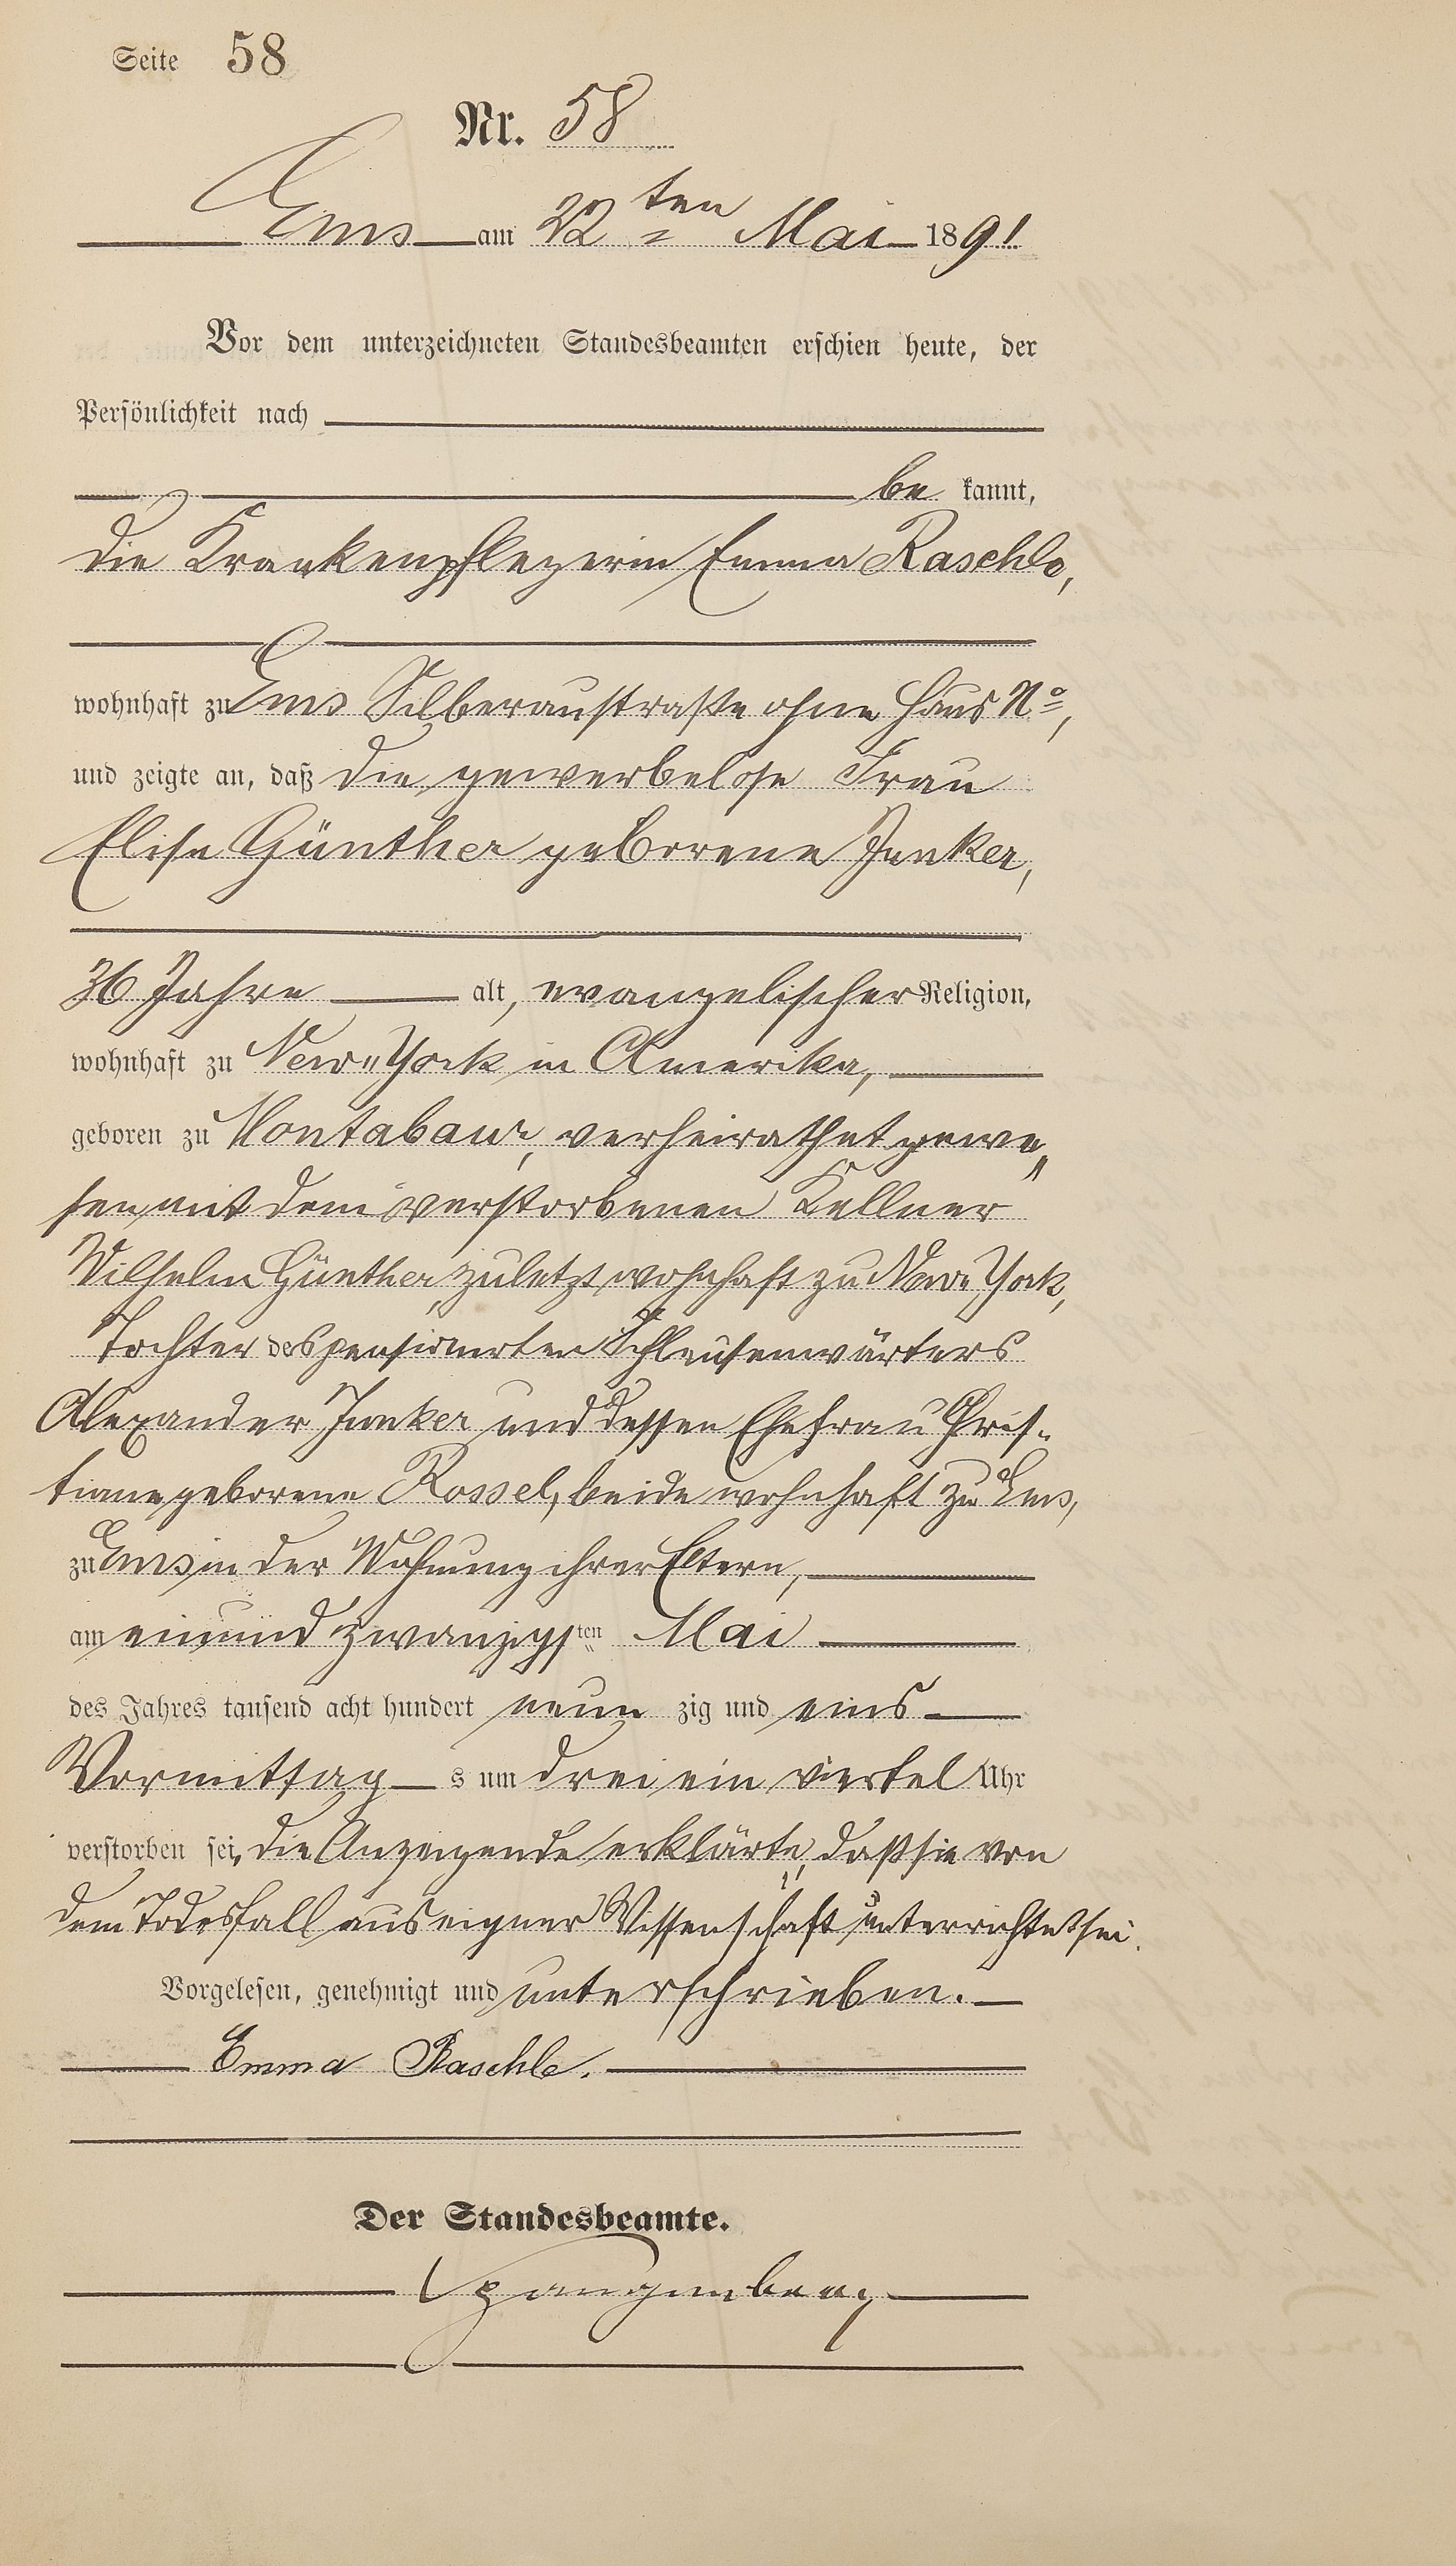 Seite 58
Nr. 58
Ems am 22ten Mai 1891.
Vor dem unterzeichneten Standesbeamten erschien heute, der
Persönlichkeit nach
be kannt,
die Krankenpflegerin Emma Raschle,
wohnhaft zu Ems Silberaustraße ohne Haus No,
und zeigte an, daß die gewerbelose Frau
Elise Günther geborene Junker,
36 Jahre alt, evangelischer Religion,
wohnhaft zu New-York in Amerika,
geboren zu Montabaur, verheirathet gewe„
sen mit dem verstorbenen Kellner
Wilhelm Günther, zuletzt wohnhaft zu New-York,
Tochter des pensionirten Schleusenwärters
Alexander Junker und dessen Ehefrau Chris-
tiane geborene Rossel, beide wohnhaft zu Ems,
zu Ems in der Wohnung ihrer Eltern,
am einundzwanzigsten Mai
des Jahres tausend acht hundert neun zig und eins
Vormittag s um drei ein viertel Uhr
verstorben sei, die Anzeigende erklärte, daß sie von
dem Todesfall aus eigner Wissenschaft unterrichtet sei.
Vorgelesen, genehmigt und unterschrieben.
Emma Raschle.
Der Standesbeamte.
Spangenberg